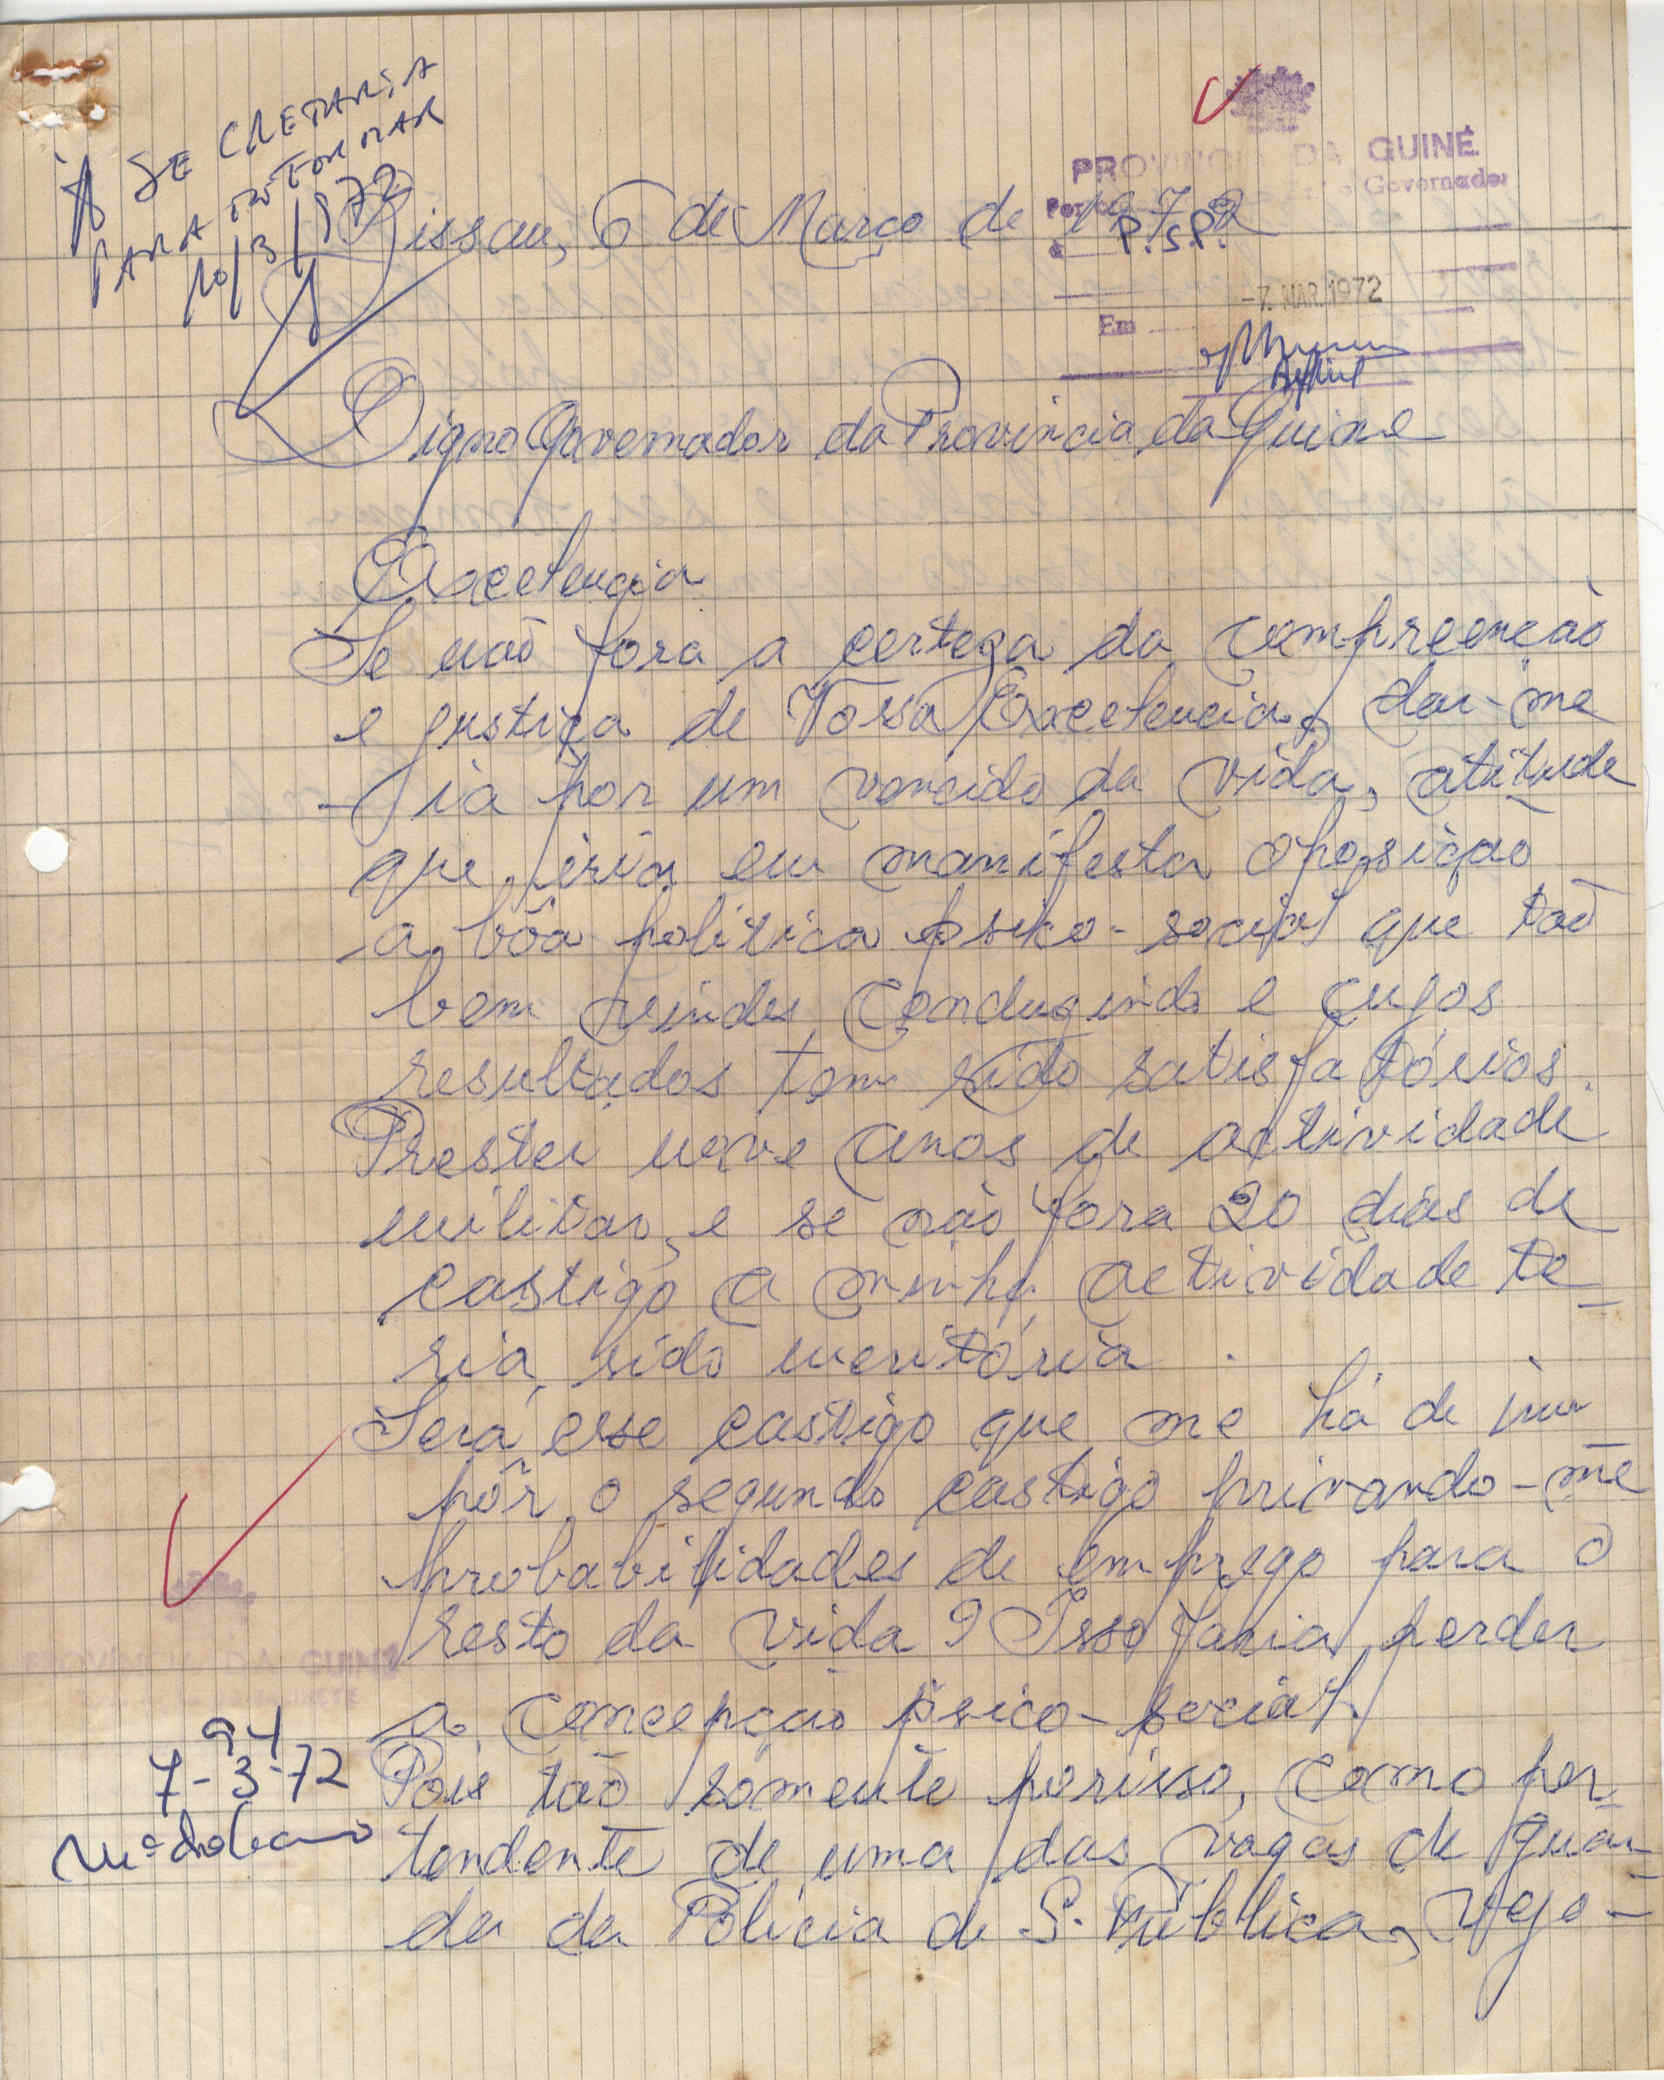 À SECRETARIA
PARA INFORMAR
10/3/1972
PROVINCIA DA GUINÉ
Governador
P.S.P.
-7. MAR. 1972
Em
Bissau, 6 de Março de 1972
Digno Governador da Provincia da Guiné
Excelencia
Se não fora a certeza da compreenção
e justiça de Vossa Excelencia, dar-me
-ia por um vencido da vida, atitude
que iria em manifesta oposição
a bôa politica psico-social que tão
bem vindes conduzindo e cujos
resultados tem sido satisfatórios.
Prestei nove anos de actividade
militar, e se não fora 20 dias de
castigo a minha actividade te-
ria sido meritória.
Será esse castigo que me há de im-
pôr o segundo castigo privando-me
probabilidades de emprego para o
resto da vida? Isso faria perder
a concepção psico-social.
Pois tão sómente porisso, como per-
tendente de uma das vagas de guar-
da da Policia de S. Pública, vejo-
PROVINCIA DA GUINÉ
GABINETE
94
7-3-72